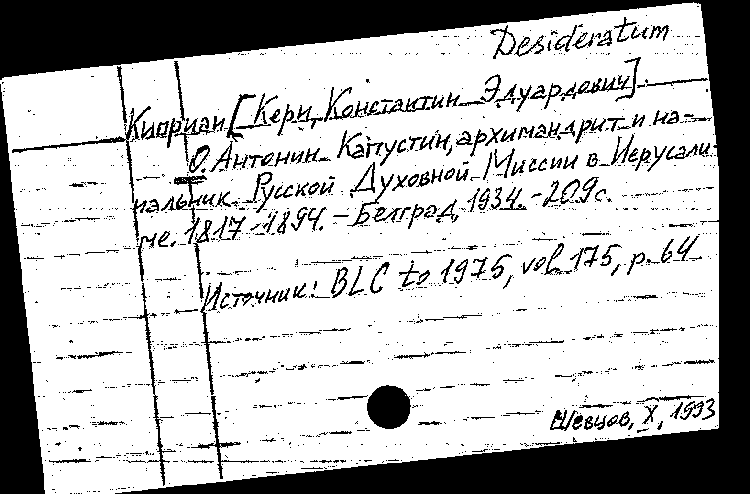 Desideratum
Киприан [Керн, Константин Эдуардович].
О. Антонин Капустин, архимандрит и на-
чальник Русской Духовной Миссии в Иерусали-
ме. 1817-1894. – Белград, 1934. – 209 с.
Источник: BLC to 1975, vol. 175, p. 64
Шевцов, X, 1993